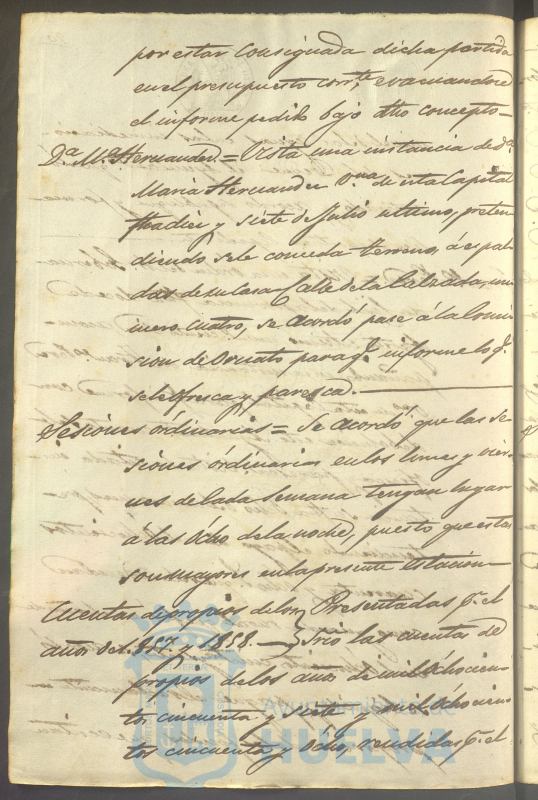 por estar consignada dicha partida
en el presupuesto corr.te evacuandose
el informe pedido bajo dho concepto=
D.a M.a Hernandez.= Vista una instancia de D.a
Maria Hernandez V.na de esta Capital
fha diez y siete de Julio ultimo, preten
diendo se le conceda terreno, á espal
das de su casa Calle de la Calzada, nu
mero cuatro, se acordó pase á la Comi
sion de Ornato para q.e informe lo q.e
se le ofresca y paresca.
Sesiones órdinarias = Se acordó que las se
siones órdinarias en los lunes y vier
nes de cada Semana tengan lugar
á las Ocho de la noche, puesto que estas
son mayores en la presente Estacion=
Cuentas de propios de los } Presentadas p.r el
años de 1.857. y 1858. } Srio las cuentas de
propios de los años de mil ochocien
tos cincuenta y siete y mil óchocien
tos cincuenta y ócho, rendidas p.r el
Ayuntamiento de
HUELVA